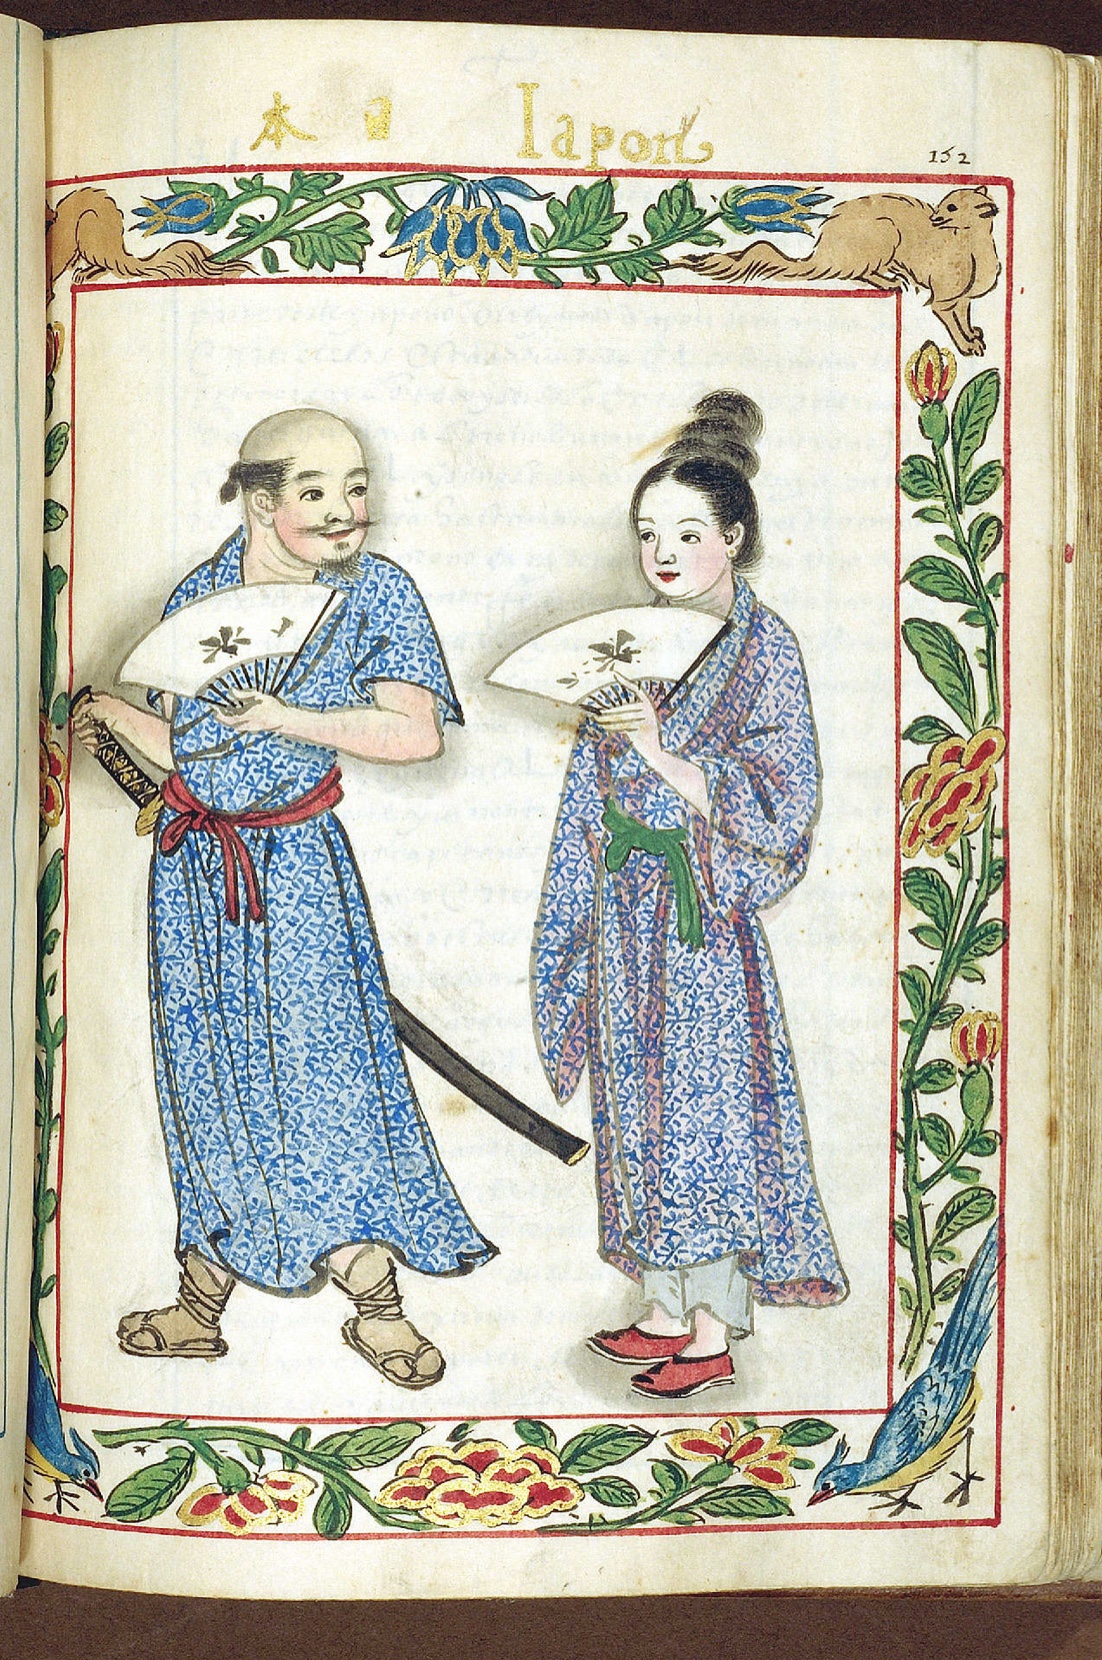 日本 Iapon
152